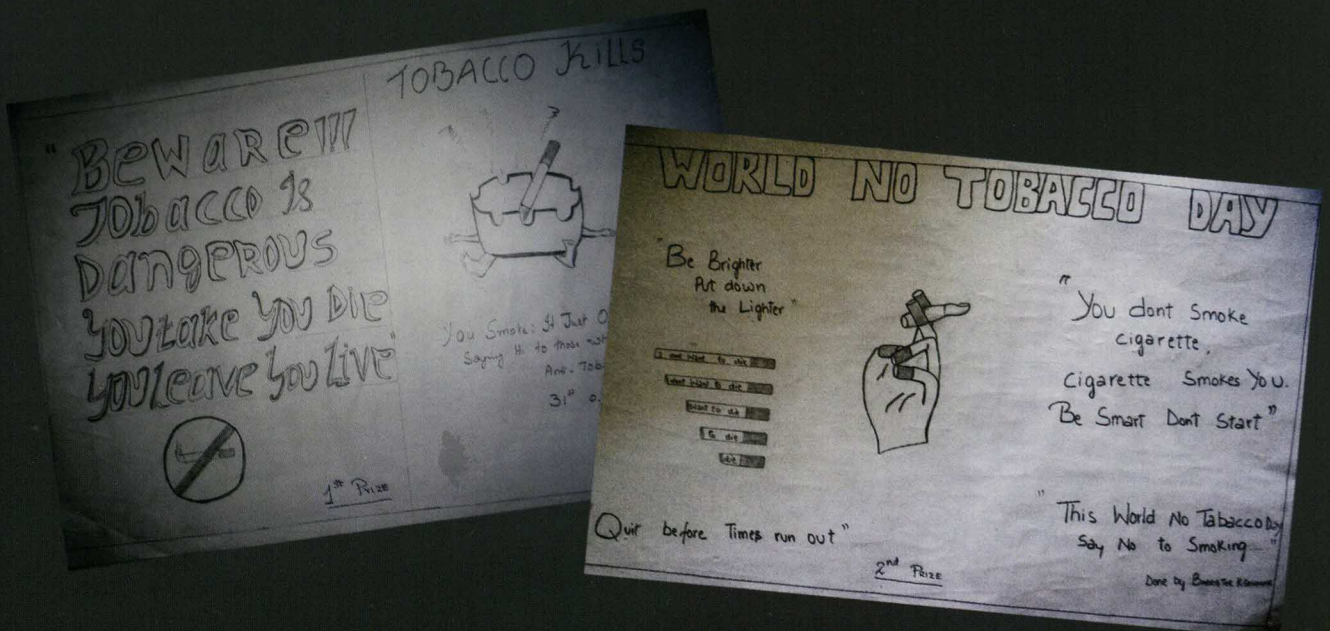 "BeWaRe!!!
TObacco Is
DangeROUS
YOU take YOU Die
YOU leave YOU Live"
1st PRIZE
TOBACCO KILLS
You Smoke: It Just
Saying Hi to those
Anti-
31st
2nd PRIZE
WORLD NO TOBACCO DAY
"Be Brighter
Put down
the Lighter"
I dont Want to die
I dont Want to die
Want to die
to die
die
Quit before Times run out"
"You dont Smoke
cigarette,
cigarette Smokes You.
Be Smart Dont Start"
"This World No Tabacco Day
Say No to Smoking"
Done by